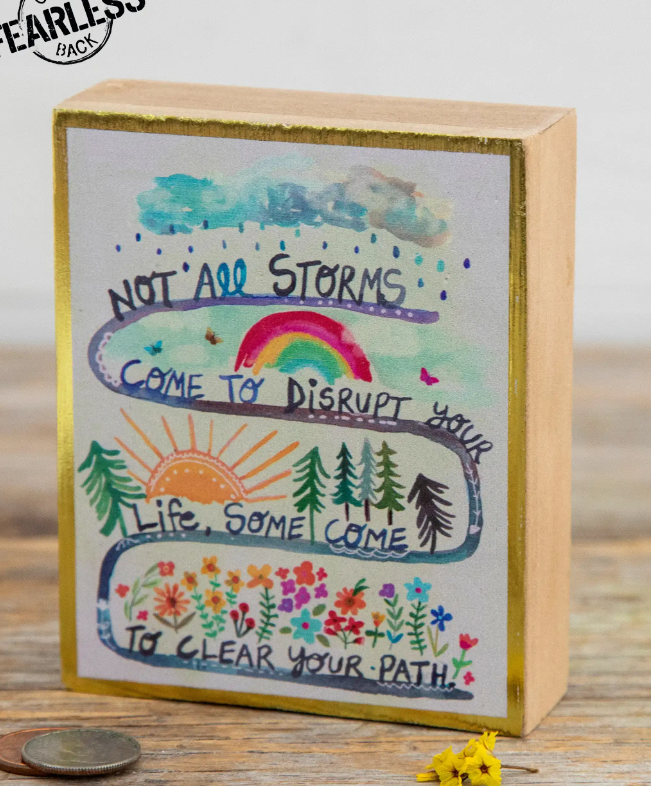 FEARLESS
BACK
NOT All STORMS
COME TO DISRUPT YOUR
Life, SOME COME
TO CLEAR YOUR PATH.